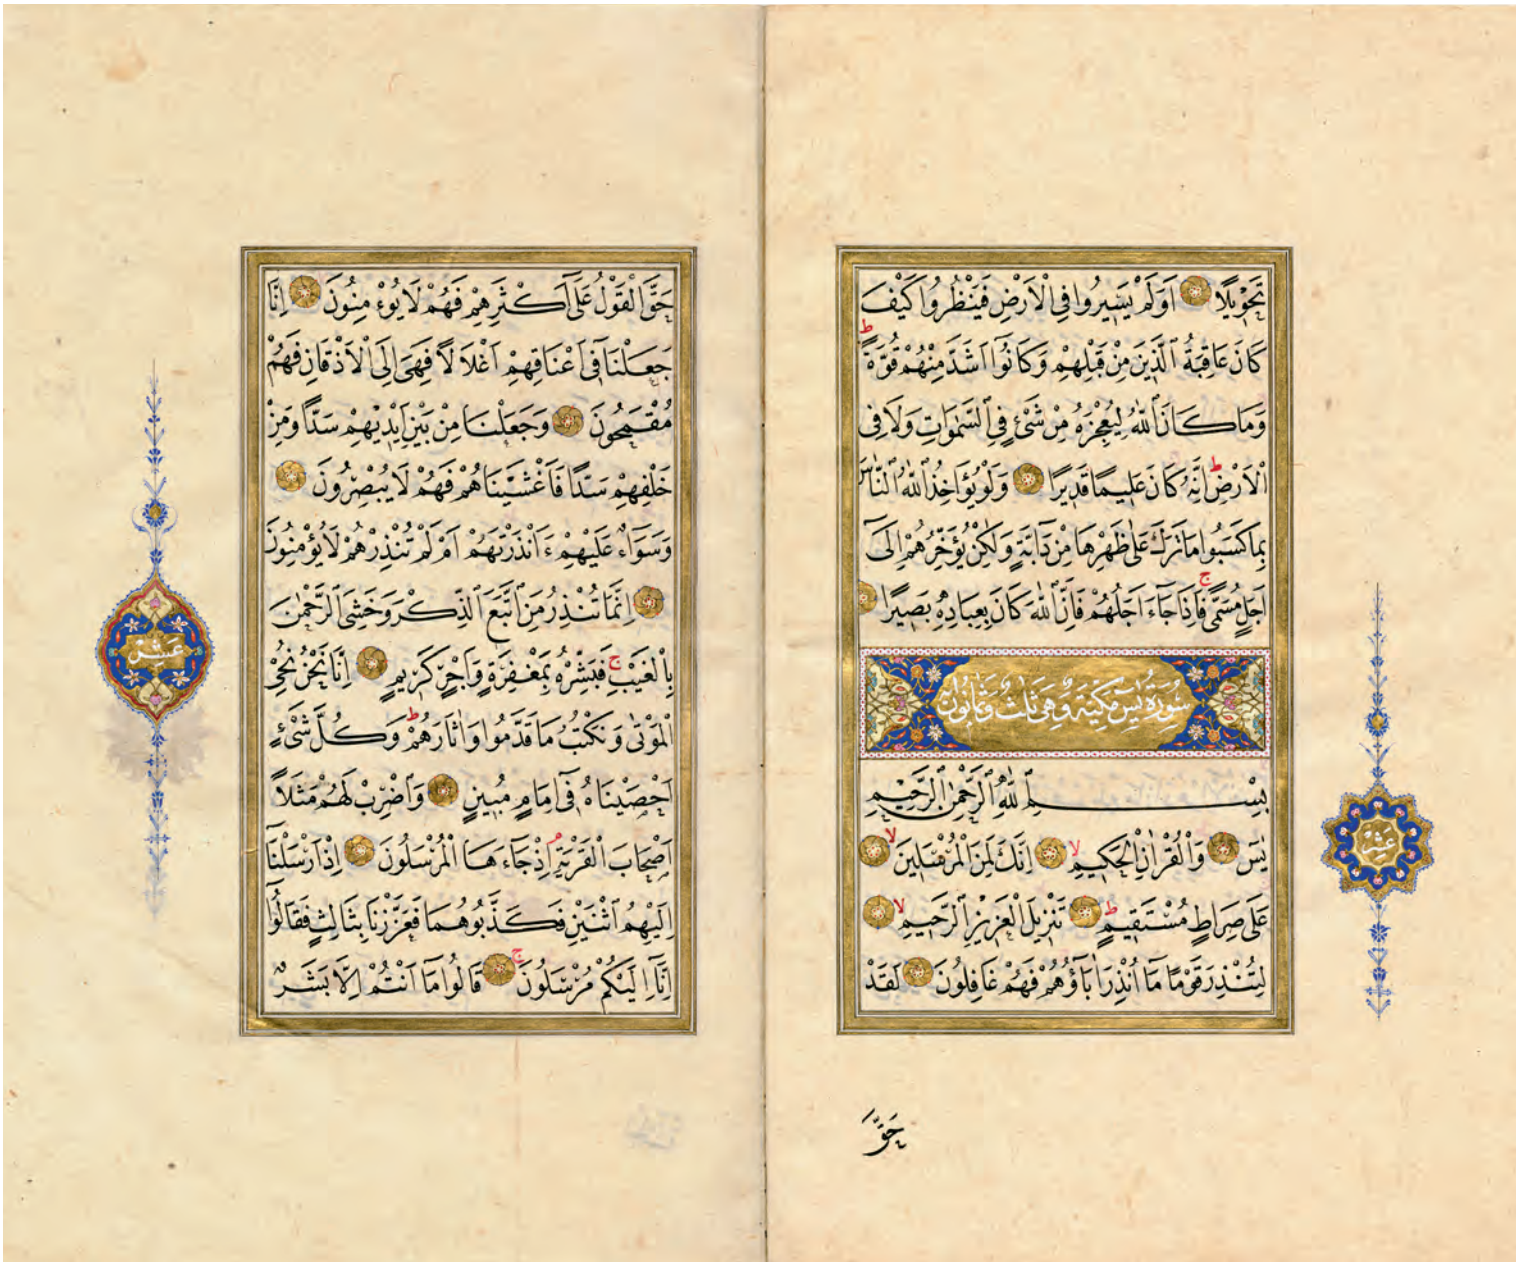 تَحْوِيلًا اَوَلَمْ يَسِيرُوا فِي الْاَرْضِ فَيَنْظُرُوا كَيْفَ
كَانَ عَاقِبَةُ الَّذِينَ مِنْ قَبْلِهِمْ وَكَانُوا اَشَدَّ مِنْهُمْ قُوَّةً ط
وَمَا كَانَ اللّٰهُ لِيُعْجِزَهُ مِنْ شَيْءٍ فِي السَّمٰوَاتِ وَلَا فِي
الْاَرْضِ ط اِنَّهُ كَانَ عَلِيمًا قَدِيرًا وَلَوْ يُؤَاخِذُ اللّٰهُ النَّاسَ
بِمَا كَسَبُوا مَا تَرَكَ عَلٰى ظَهْرِهَا مِنْ دَابَّةٍ وَلٰكِنْ يُؤَخِّرُهُمْ اِلٰٓى
اَجَلٍ مُسَمًّى ج فَاِذَا جَآءَ اَجَلُهُمْ فَاِنَّ اللّٰهَ كَانَ بِعِبَادِهِ بَصِيرًا
سُورَةُ يٰسٓ مَكِّيَّة وَهِيَ ثَلٰثٌ وَثَمَانُونَ
بِسْمِ اللّٰهِ الرَّحْمٰنِ الرَّحِيمِ
يٰسٓ وَالْقُرْاٰنِ الْحَكِيمِ لا اِنَّكَ لَمِنَ الْمُرْسَلِينَ لا
عَلٰى صِرَاطٍ مُسْتَقِيمٍ ط تَنْزِيلَ الْعَزِيزِ الرَّحِيمِ لا
لِتُنْذِرَ قَوْمًا مَٓا اُنْذِرَ اٰبَٓاؤُهُمْ فَهُمْ غَافِلُونَ لَقَدْ
عَشْر
حَقَّ
حَقَّ الْقَوْلُ عَلٰٓى اَكْثَرِهِمْ فَهُمْ لَا يُؤْمِنُونَ اِنَّا
جَعَلْنَا فِٓي اَعْنَاقِهِمْ اَغْلَالًا فَهِيَ اِلَى الْاَذْقَانِ فَهُمْ
مُقْمَحُونَ وَجَعَلْنَا مِنْ بَيْنِ اَيْدِيهِمْ سَدًّا وَمِنْ
خَلْفِهِمْ سَدًّا فَاَغْشَيْنَاهُمْ فَهُمْ لَا يُبْصِرُونَ
وَسَوَآءٌ عَلَيْهِمْ ءَاَنْذَرْتَهُمْ اَمْ لَمْ تُنْذِرْهُمْ لَا يُؤْمِنُونَ
اِنَّمَا تُنْذِرُ مَنِ اتَّبَعَ الذِّكْرَ وَخَشِيَ الرَّحْمٰنَ
بِالْغَيْبِ ج فَبَشِّرْهُ بِمَغْفِرَةٍ وَاَجْرٍ كَرِيمٍ اِنَّا نَحْنُ نُحْيِ
الْمَوْتٰى وَنَكْتُبُ مَا قَدَّمُوا وَاٰثَارَهُمْ ط وَكُلَّ شَيْءٍ
اَحْصَيْنَاهُ فِٓي اِمَامٍ مُبِينٍ وَاضْرِبْ لَهُمْ مَثَلًا
اَصْحَابَ الْقَرْيَةِ م اِذْ جَآءَهَا الْمُرْسَلُونَ اِذْ اَرْسَلْنَٓا
اِلَيْهِمُ اثْنَيْنِ فَكَذَّبُوهُمَا فَعَزَّزْنَا بِثَالِثٍ فَقَالُٓوا
اِنَّٓا اِلَيْكُمْ مُرْسَلُونَ ج قَالُوا مَٓا اَنْتُمْ اِلَّا بَشَرٌ
عَشْر